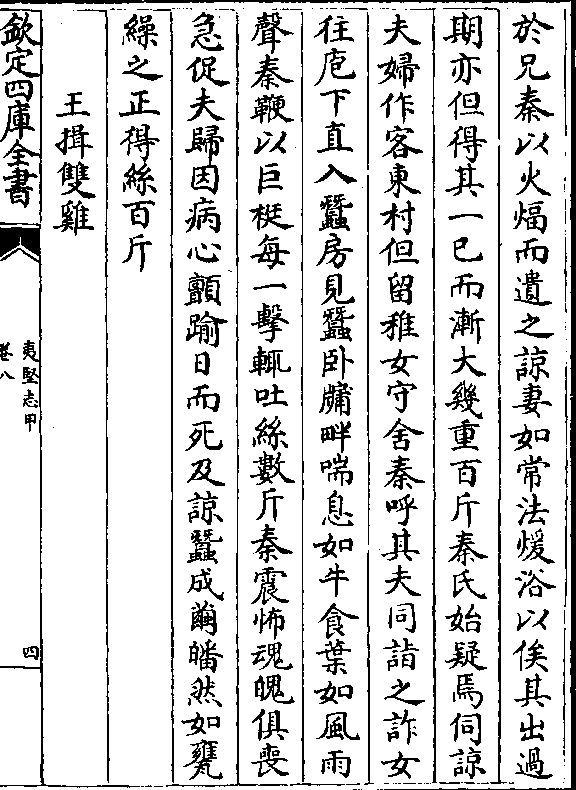 於兄秦以火煏而遺之諒妻如常法煖浴以俟其出過
期亦但得其一已而漸大幾重百斤秦氏始疑焉伺諒
夫婦作客東村但留稚女守舍秦呼其夫同詣之詐女
往庖下直入蠶房見蠶卧牗畔喘息如牛食葉如風雨
聲秦鞭以巨梃每一擊輒吐絲數斤秦震怖魂魄俱喪
急促夫歸因病心顫踰日而死及諒蠶成繭皤然如甕
繰之正得絲百斤
王揖雙雞
欽定四庫全書
夷堅志甲
卷八
四